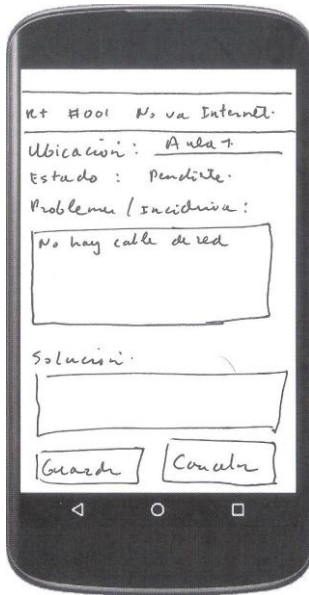 RT #001 No va Internet.
Ubicación: Aula 7
Estado: Pendiente.
Problema / Incidencia:
No hay cable de red
Solución.
Guardar Cancelar